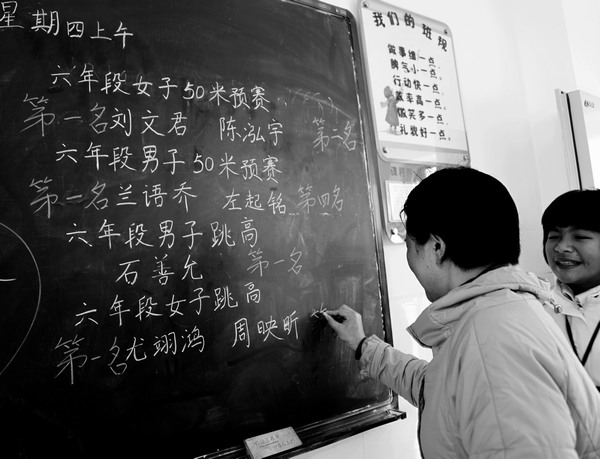 星期四上午
六年段女子50米预赛
第一名刘文君 陈泓宇 第二名
六年段男子50米预赛
第一名兰语乔 左起铭 第四名
六年段男子跳高
石善允 第一名
六年段女子跳高
第一名尤翊鸿 周映昕
我们的班规
做事细一点.
脾气小一点.
行动快一点.
效率高一点.
微笑多一点.
礼貌好一点.